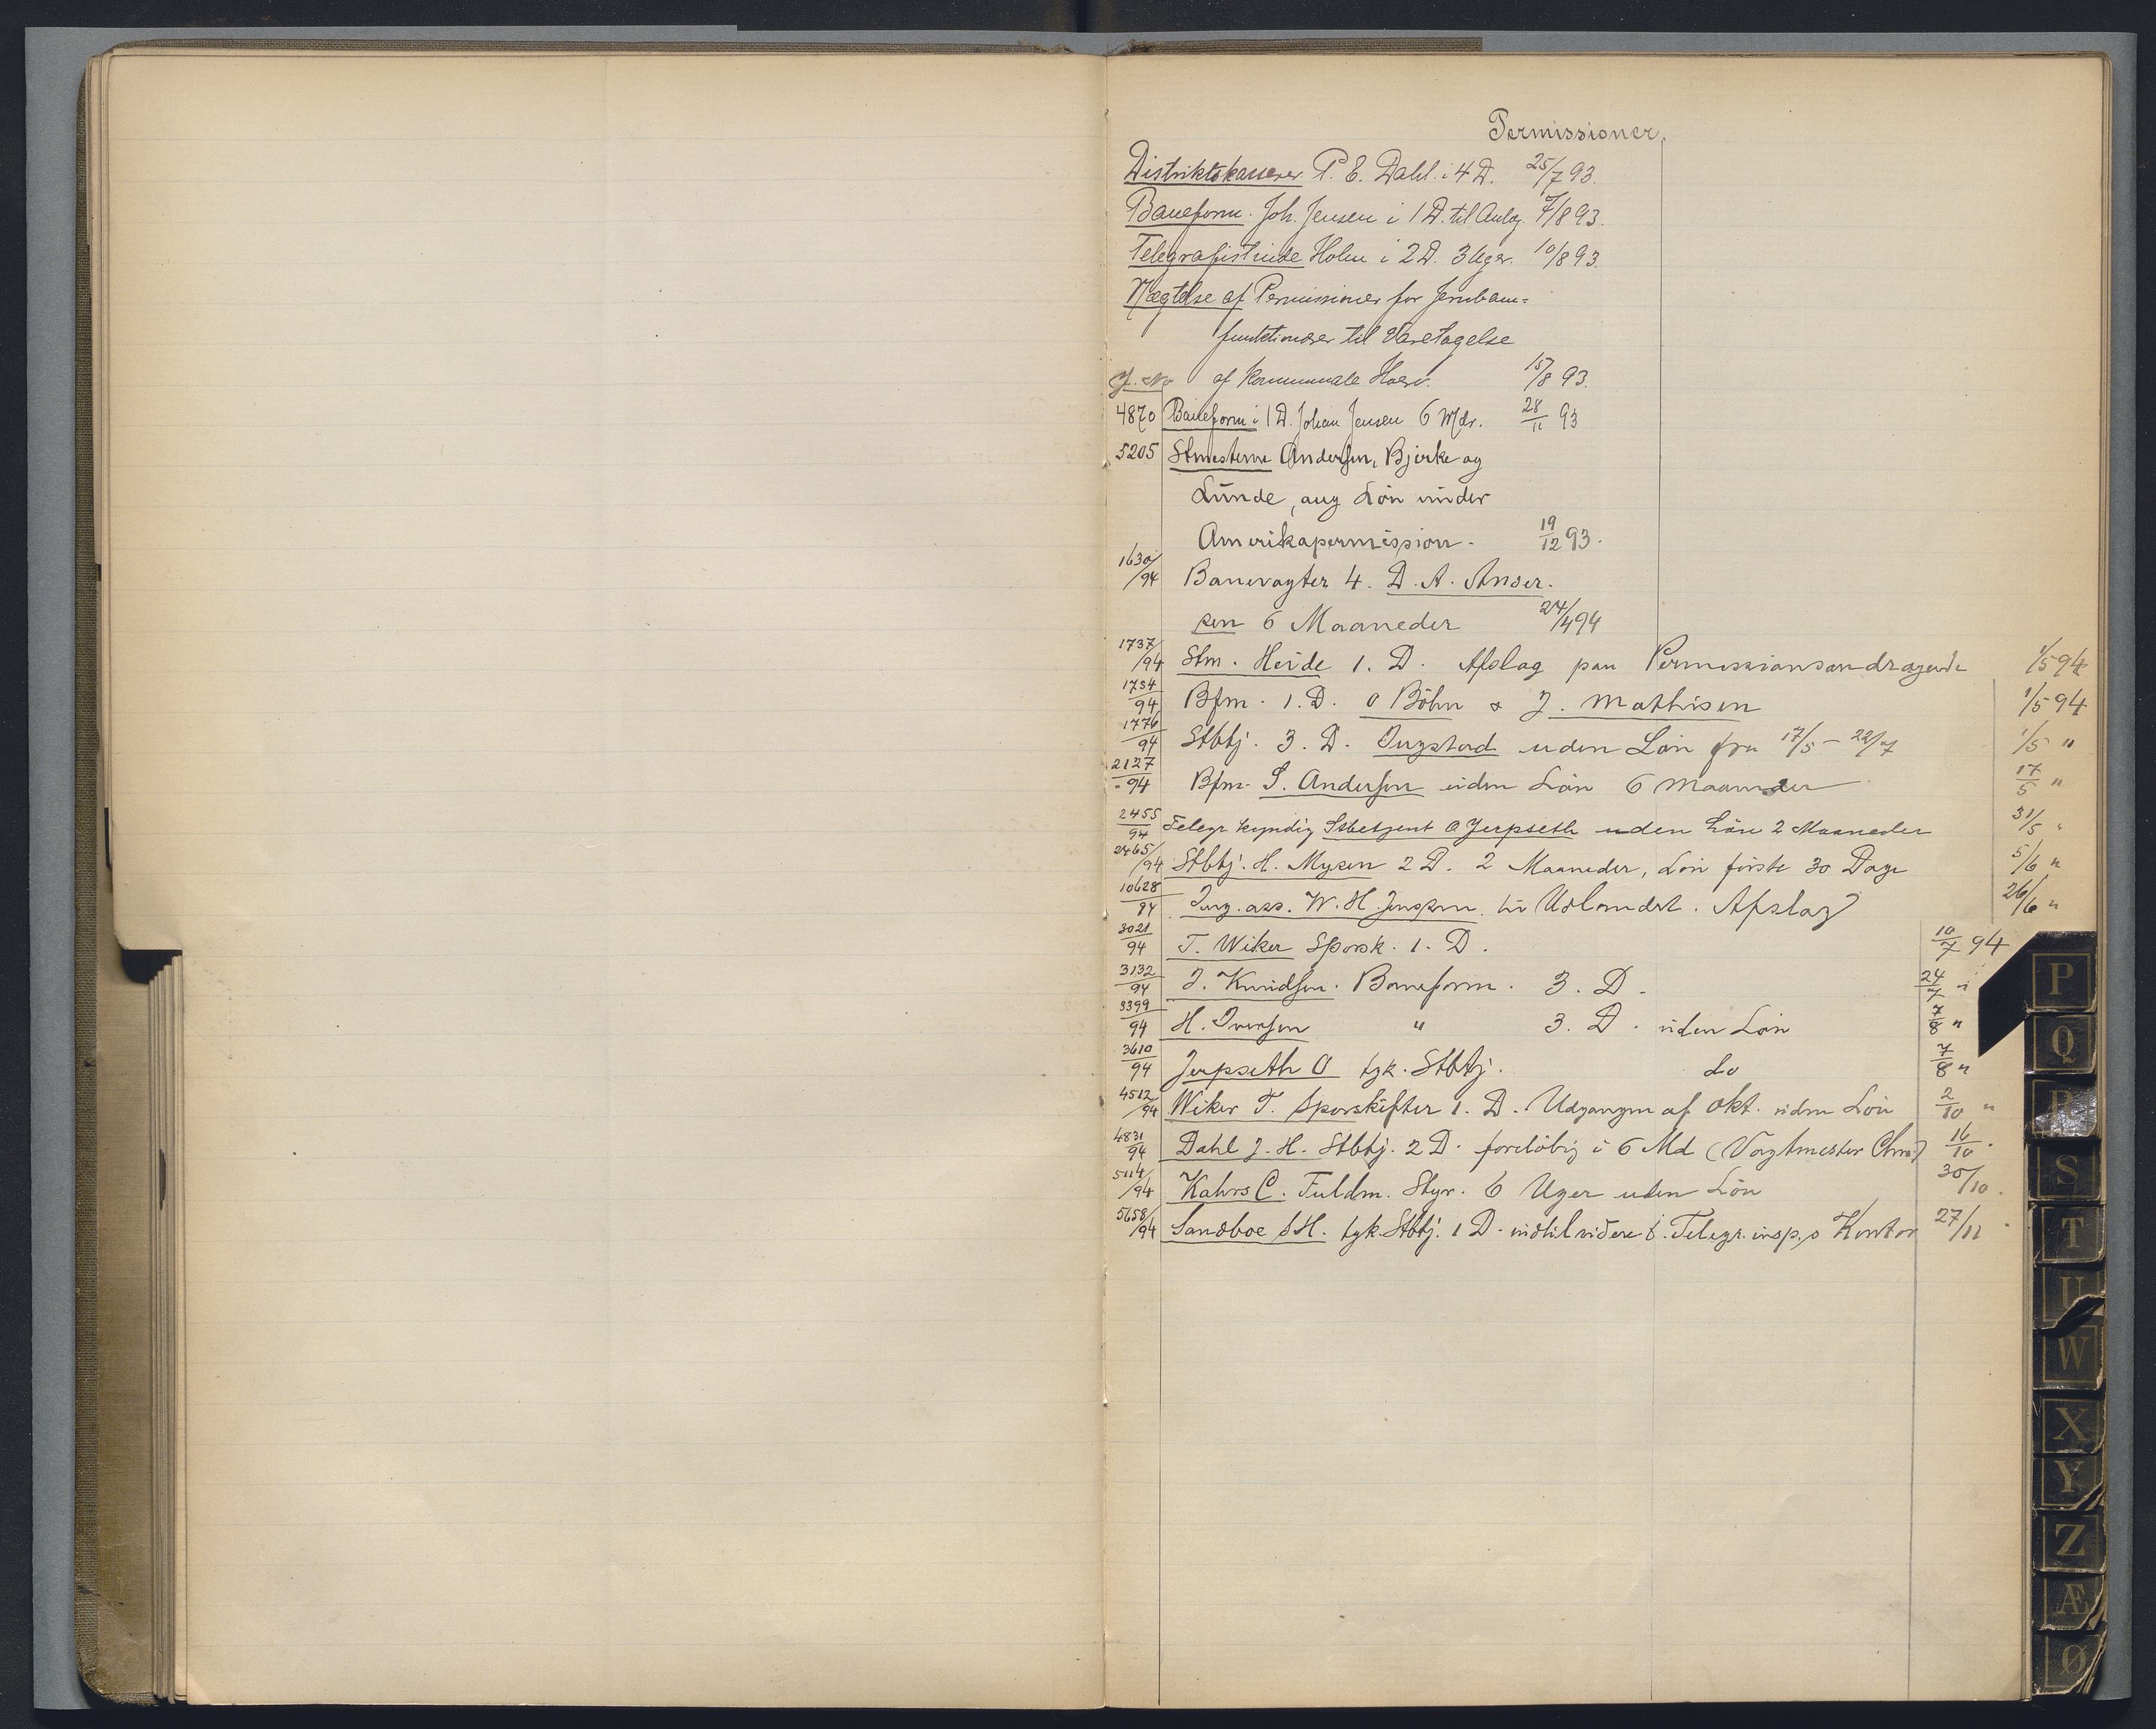 Permissioner.
Distriktskasserer P. E. Dahl i 4 D. 25/7 93.
Baneform. Joh. Jensen i 1 D. til Anlæg 7/8 93.
Telegrafistinde Holm i 2 D. 3 Uger. 10/8 93.
Nægtelse af Permissioner for Jernban=
funktionærer til Varetagelse
J. No af kommunale Hverv. 15/8 93.
4870 Baneform i 1 D. Johan Jensen 6 Mdr. 28/11 93
5205 Stmesterne Andersen, Bjerke og
Lunde, ang Lön under
Amerikapermission. 19/12 93.
1630/94 Banevogter 4. D. A. Ander-
sen 6 Maaneder 24/4 94
1737/94 Stm. Heide 1. D. Afslag paa Permissionsandragende 1/5 94
1754/94 Bfm. 1. D. O Böhn & J. Mathisen 1/5 94
1776/94 Stbtj. 3. D. uden Lön fra 17/5 - 22/7 1/5 "
2127/94 Bfm. S. Andersen uden Lön 6 Maaneder 17/5 "
2455/94 Telegr kyndig Stbetjent O Jerpseth uden Lön 2 Maaneder 31/5 "
2465/94 Stbtj. H. Mysen 2 D. 2 Maaneder, Lön förste 30 Dage 5/6 "
10628/94 Ing. ass. W. H. Jenssen til Udlandet. Afslag 26/6 "
3021/94 T. Wiker Sporsk. 1. D. 10/7 94
3132/94 J. Knudsen. Baneform. 3. D. 24/7 "
3399/94 H. Iversen " 3. D. uden Lön 7/8 "
3610/94 Jerpseth O tgk. Stbtj. do 7/8 "
4512/94 Wiker T. Sporskifter 1. D. Udgangen af Okt. uden Lön 2/10 "
4831/94 Dahl J. H. Stbtj. 2 D. forelöbig i 6 Md (Vogtmester Chra) 16/10 "
5114/94 Kahrs C. Fuldm. Styr. 6 Uger uden Lön 30/10 "
5658/94 Sandboe H. tgk. Stbtj. 1 D. indtil videre i Telegr. insp.s Kontor 27/11 "
P
Q
R
S
T
U
W
X
Y
Z
Æ
Ø